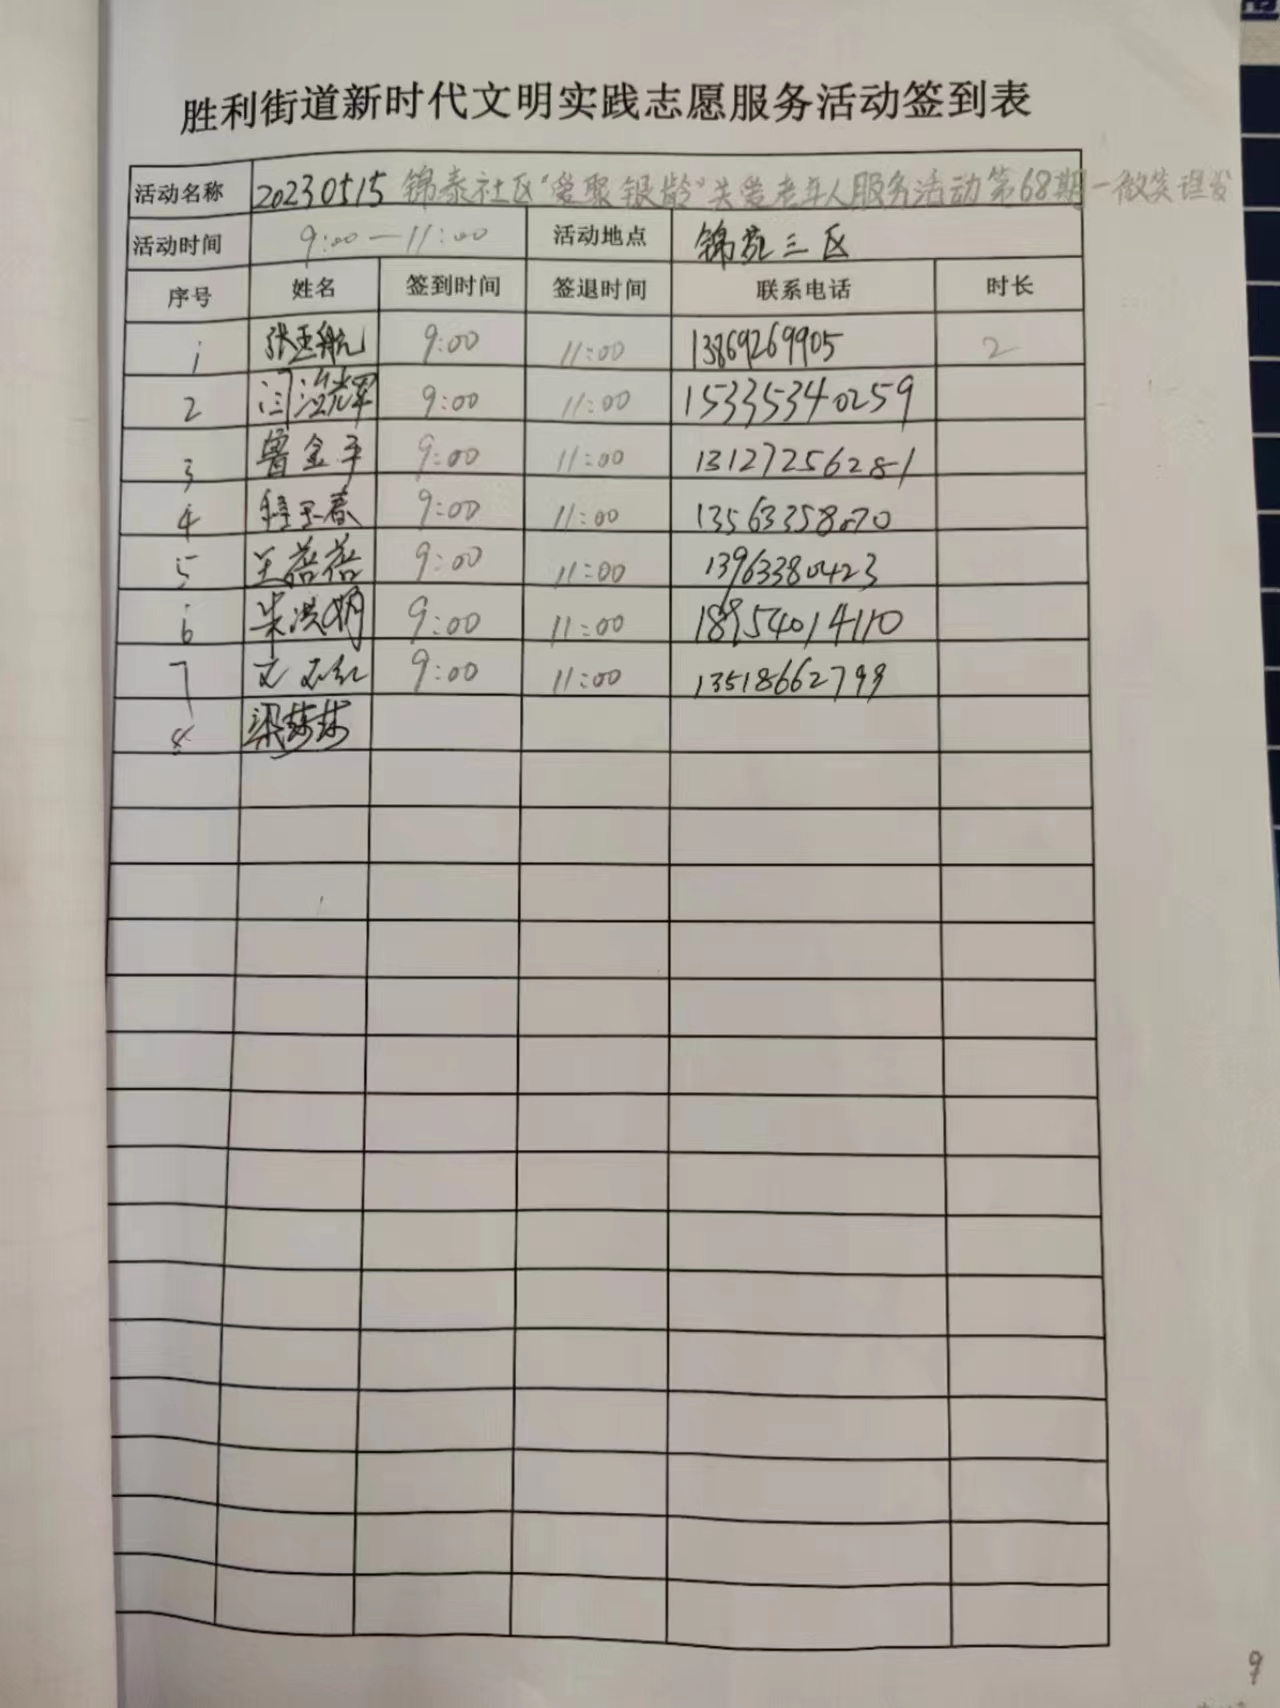 胜利街道新时代文明实践志愿服务活动签到表
活动名称 20230515 锦泰社区"爱聚银龄"关爱老年人服务活动第68期一微笑理发
活动时间 9:00—11:00 活动地点 锦苑三区
序号 姓名 签到时间 签退时间 联系电话 时长
1 张玉航 9:00 11:00 13869269905 2
2 9:00 11:00 15335340259
3 鲁金平 9:00 11:00 13127256281
4 程玉春 9:00 11:00 13563358070
5 王蓓蓓 9:00 11:00 13963380423
6 朱洪明 9:00 11:00 18954014110
7 9:00 11:00 13518662799
8 梁莎莎
9